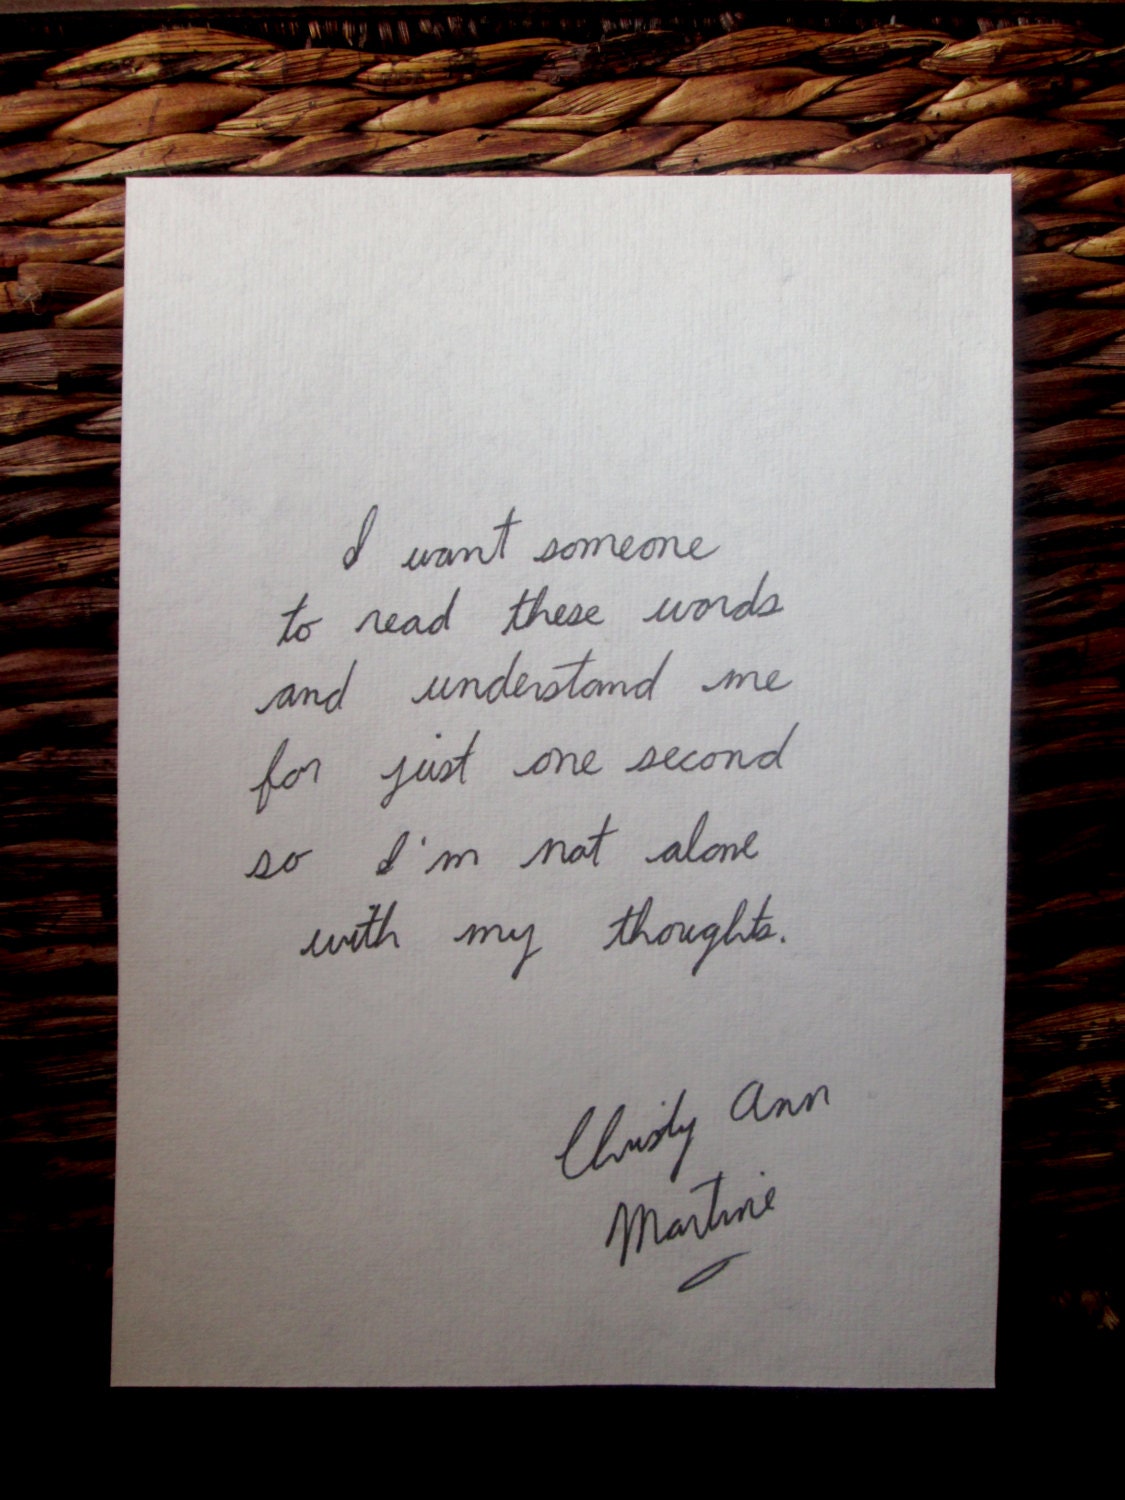 I want someone
to read these words
and understand me
for just one second
so I'm not alone
with my thoughts.
Christy Ann
Martine